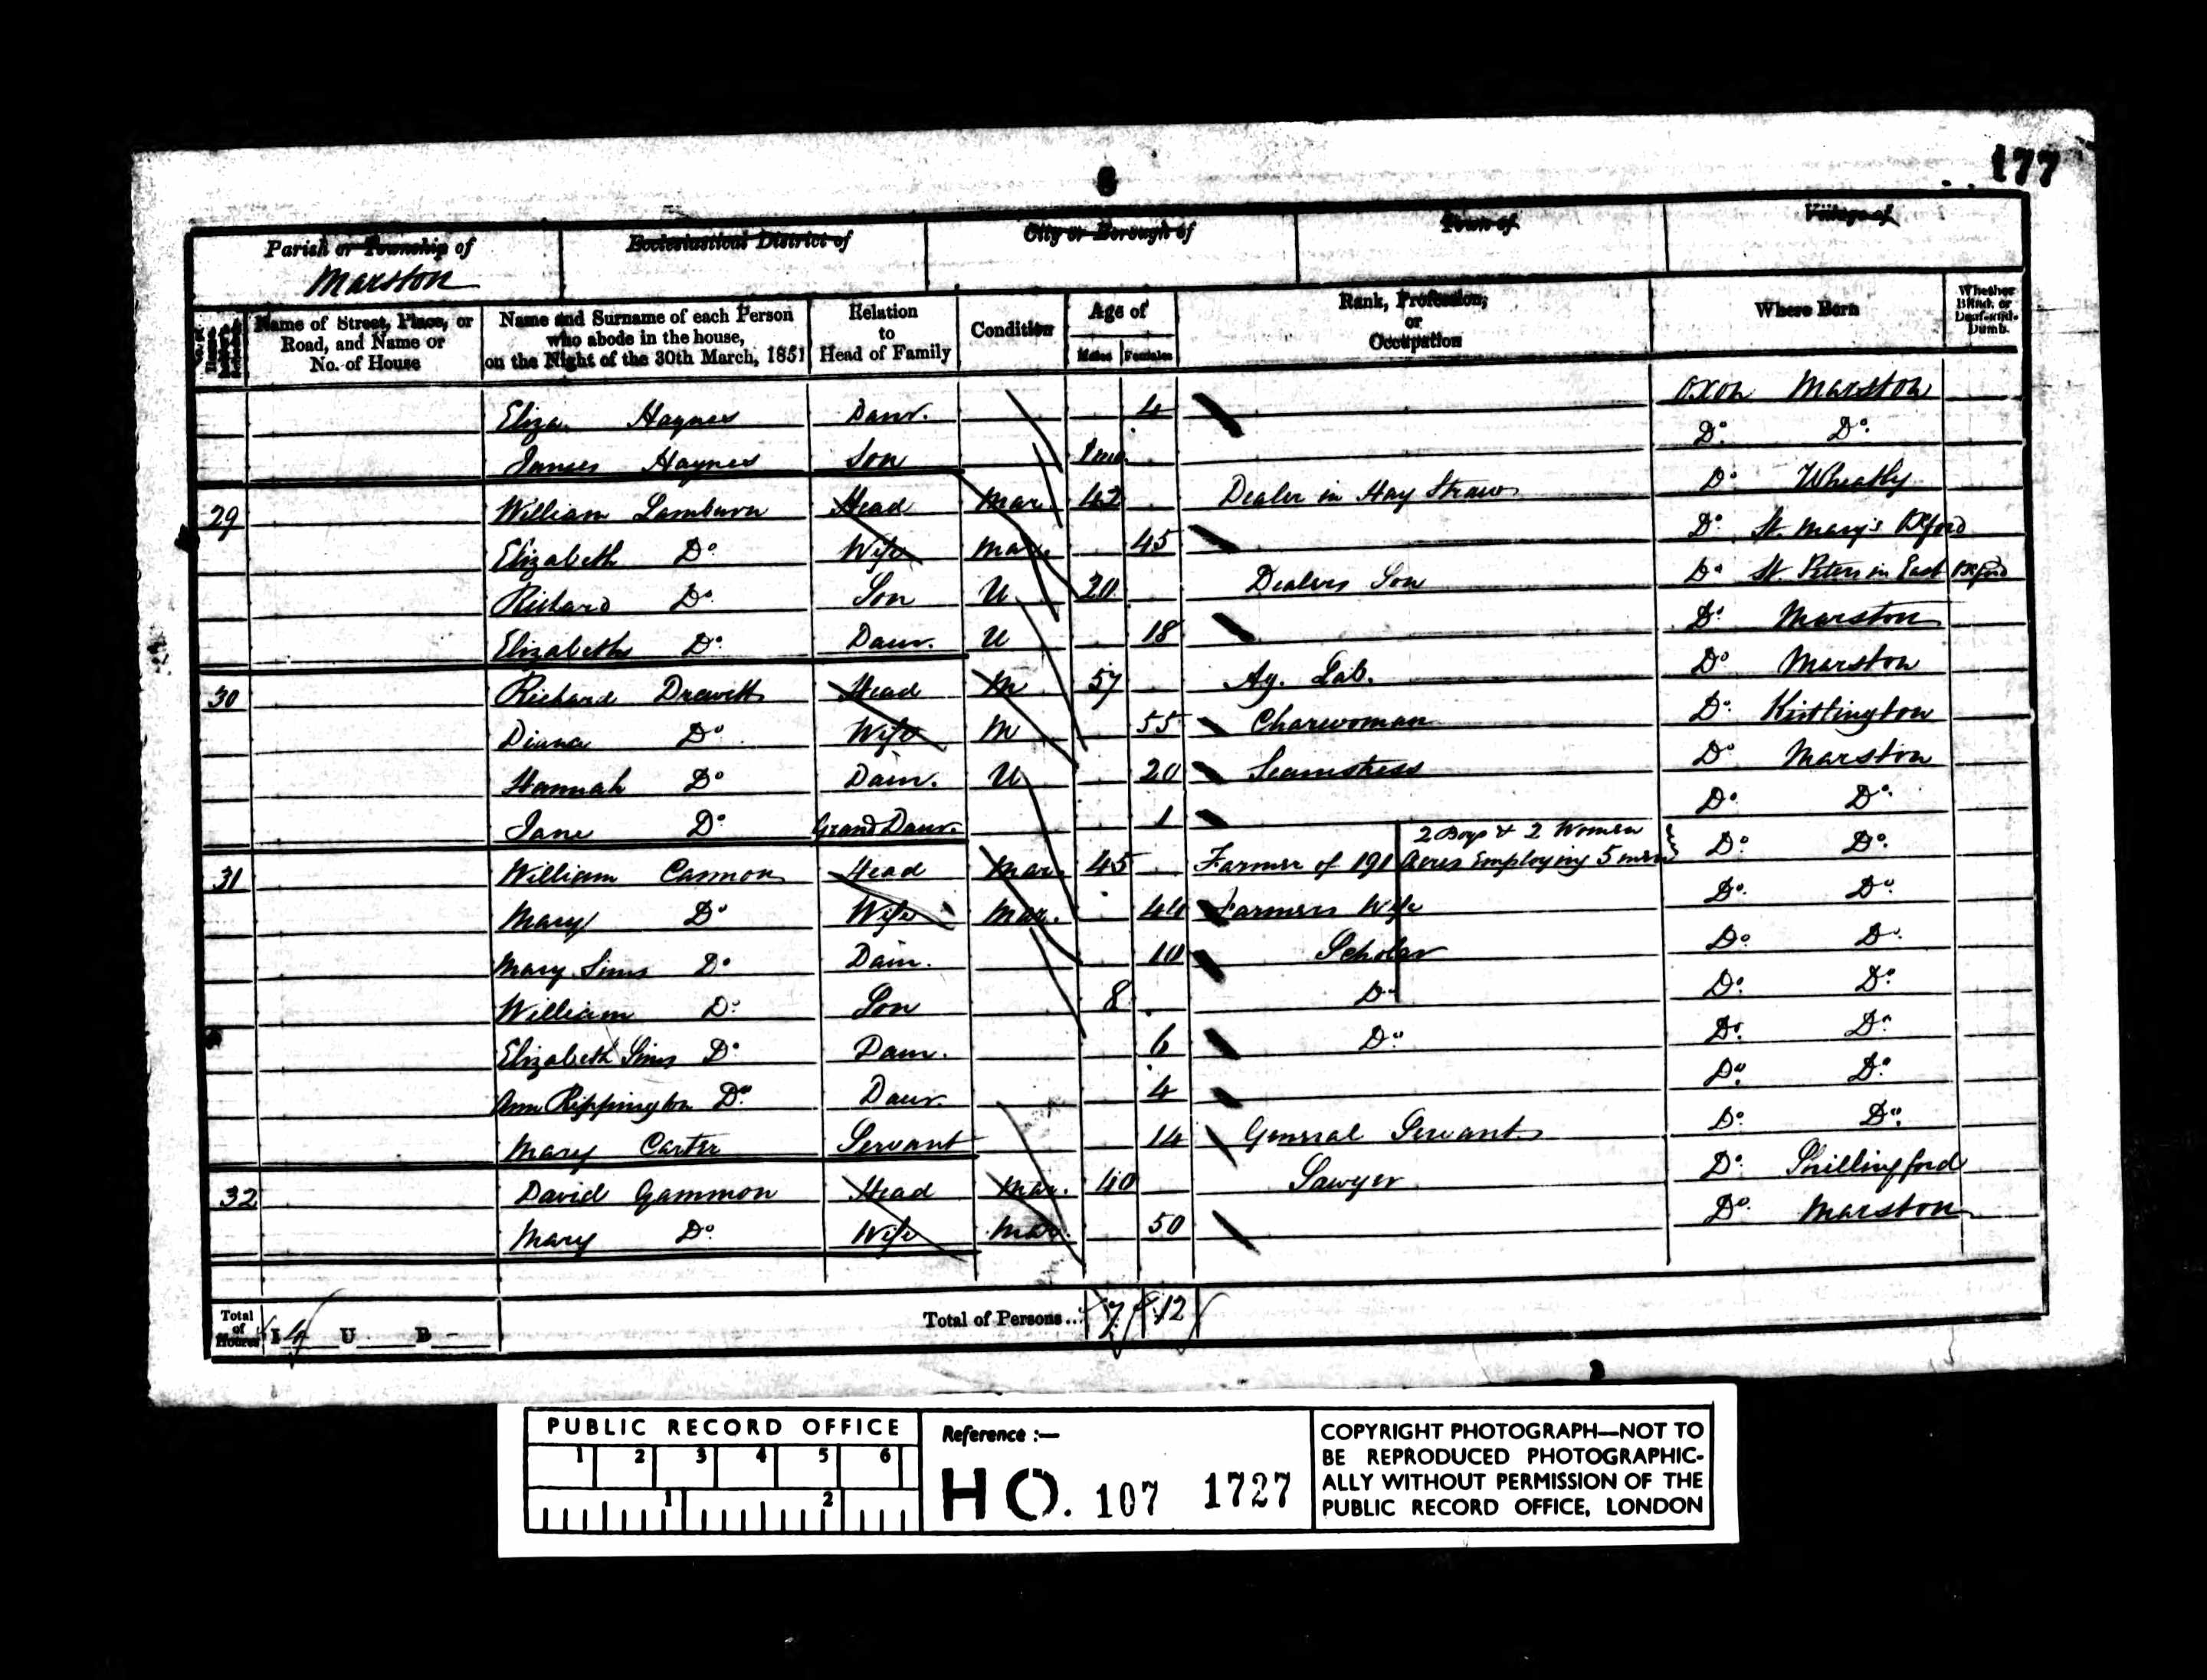 6
177
Parish or Township of Ecclesiastical District of City or Borough of Town of Village of
Marston
Name of Street, Place, or Road, and Name or No. of House
Name and Surname of each Person who abode in the house, on the Night of the 30th March, 1851
Relation to Head of Family
Condition
Age of
Males Females
Rank, Profession, or Occupation
Where Born
Whether Blind, or Deaf-and-Dumb.
Eliza Haynes Daur. 4 Oxon Marston
James Haynes Son Do. Do.
29 William Lamburn Head Mar. 42 Dealer in Hay Straw Do Wheatly
Elizabeth Do Wife Mar. 45 Do. St. Mary's Oxford
Richard Do. Son U 20 Dealers Son Do St. Peters in East Oxford
Elizabeth Do. Daur. U 18 Do. Marston
30 Richard Drewett Head M 57 Ag. Lab. Do Marston
Diana Do Wife M 55 Charwoman Do. Kirtlington
Hannah Do Daur. U 20 Seamstress Do Marston
Jane Do. Grand Daur. 1 Do. Do.
2 Boys & 2 Women
31 William Cannon Head Mar. 45 Farmer of 191 Acres Employing 5 men Do. Do.
Mary Do Wife Mar. 44 Farmers Wife Do. Do.
Mary Sims Do Daur. 10 Scholar Do. Do.
William Do. Son 8 Do. Do. Do.
Elizabeth Sims Do Daur. 6 Do. Do. Do.
Ann Rippington Do. Daur. 4 Do. Do.
Mary Carter Servant 14 General Servant Do. Do.
32 David Gammon Head Mar. 40 Sawyer Do. Shillingford
Mary Do. Wife Mar. 50 Do. Marston
Total of Houses I 4 U B Total of Persons... 7 12
PUBLIC RECORD OFFICE
1 2 3 4 5 6
1 2
Reference :—
HO. 107 1727
COPYRIGHT PHOTOGRAPH—NOT TO
BE REPRODUCED PHOTOGRAPHIC-
ALLY WITHOUT PERMISSION OF THE
PUBLIC RECORD OFFICE, LONDON